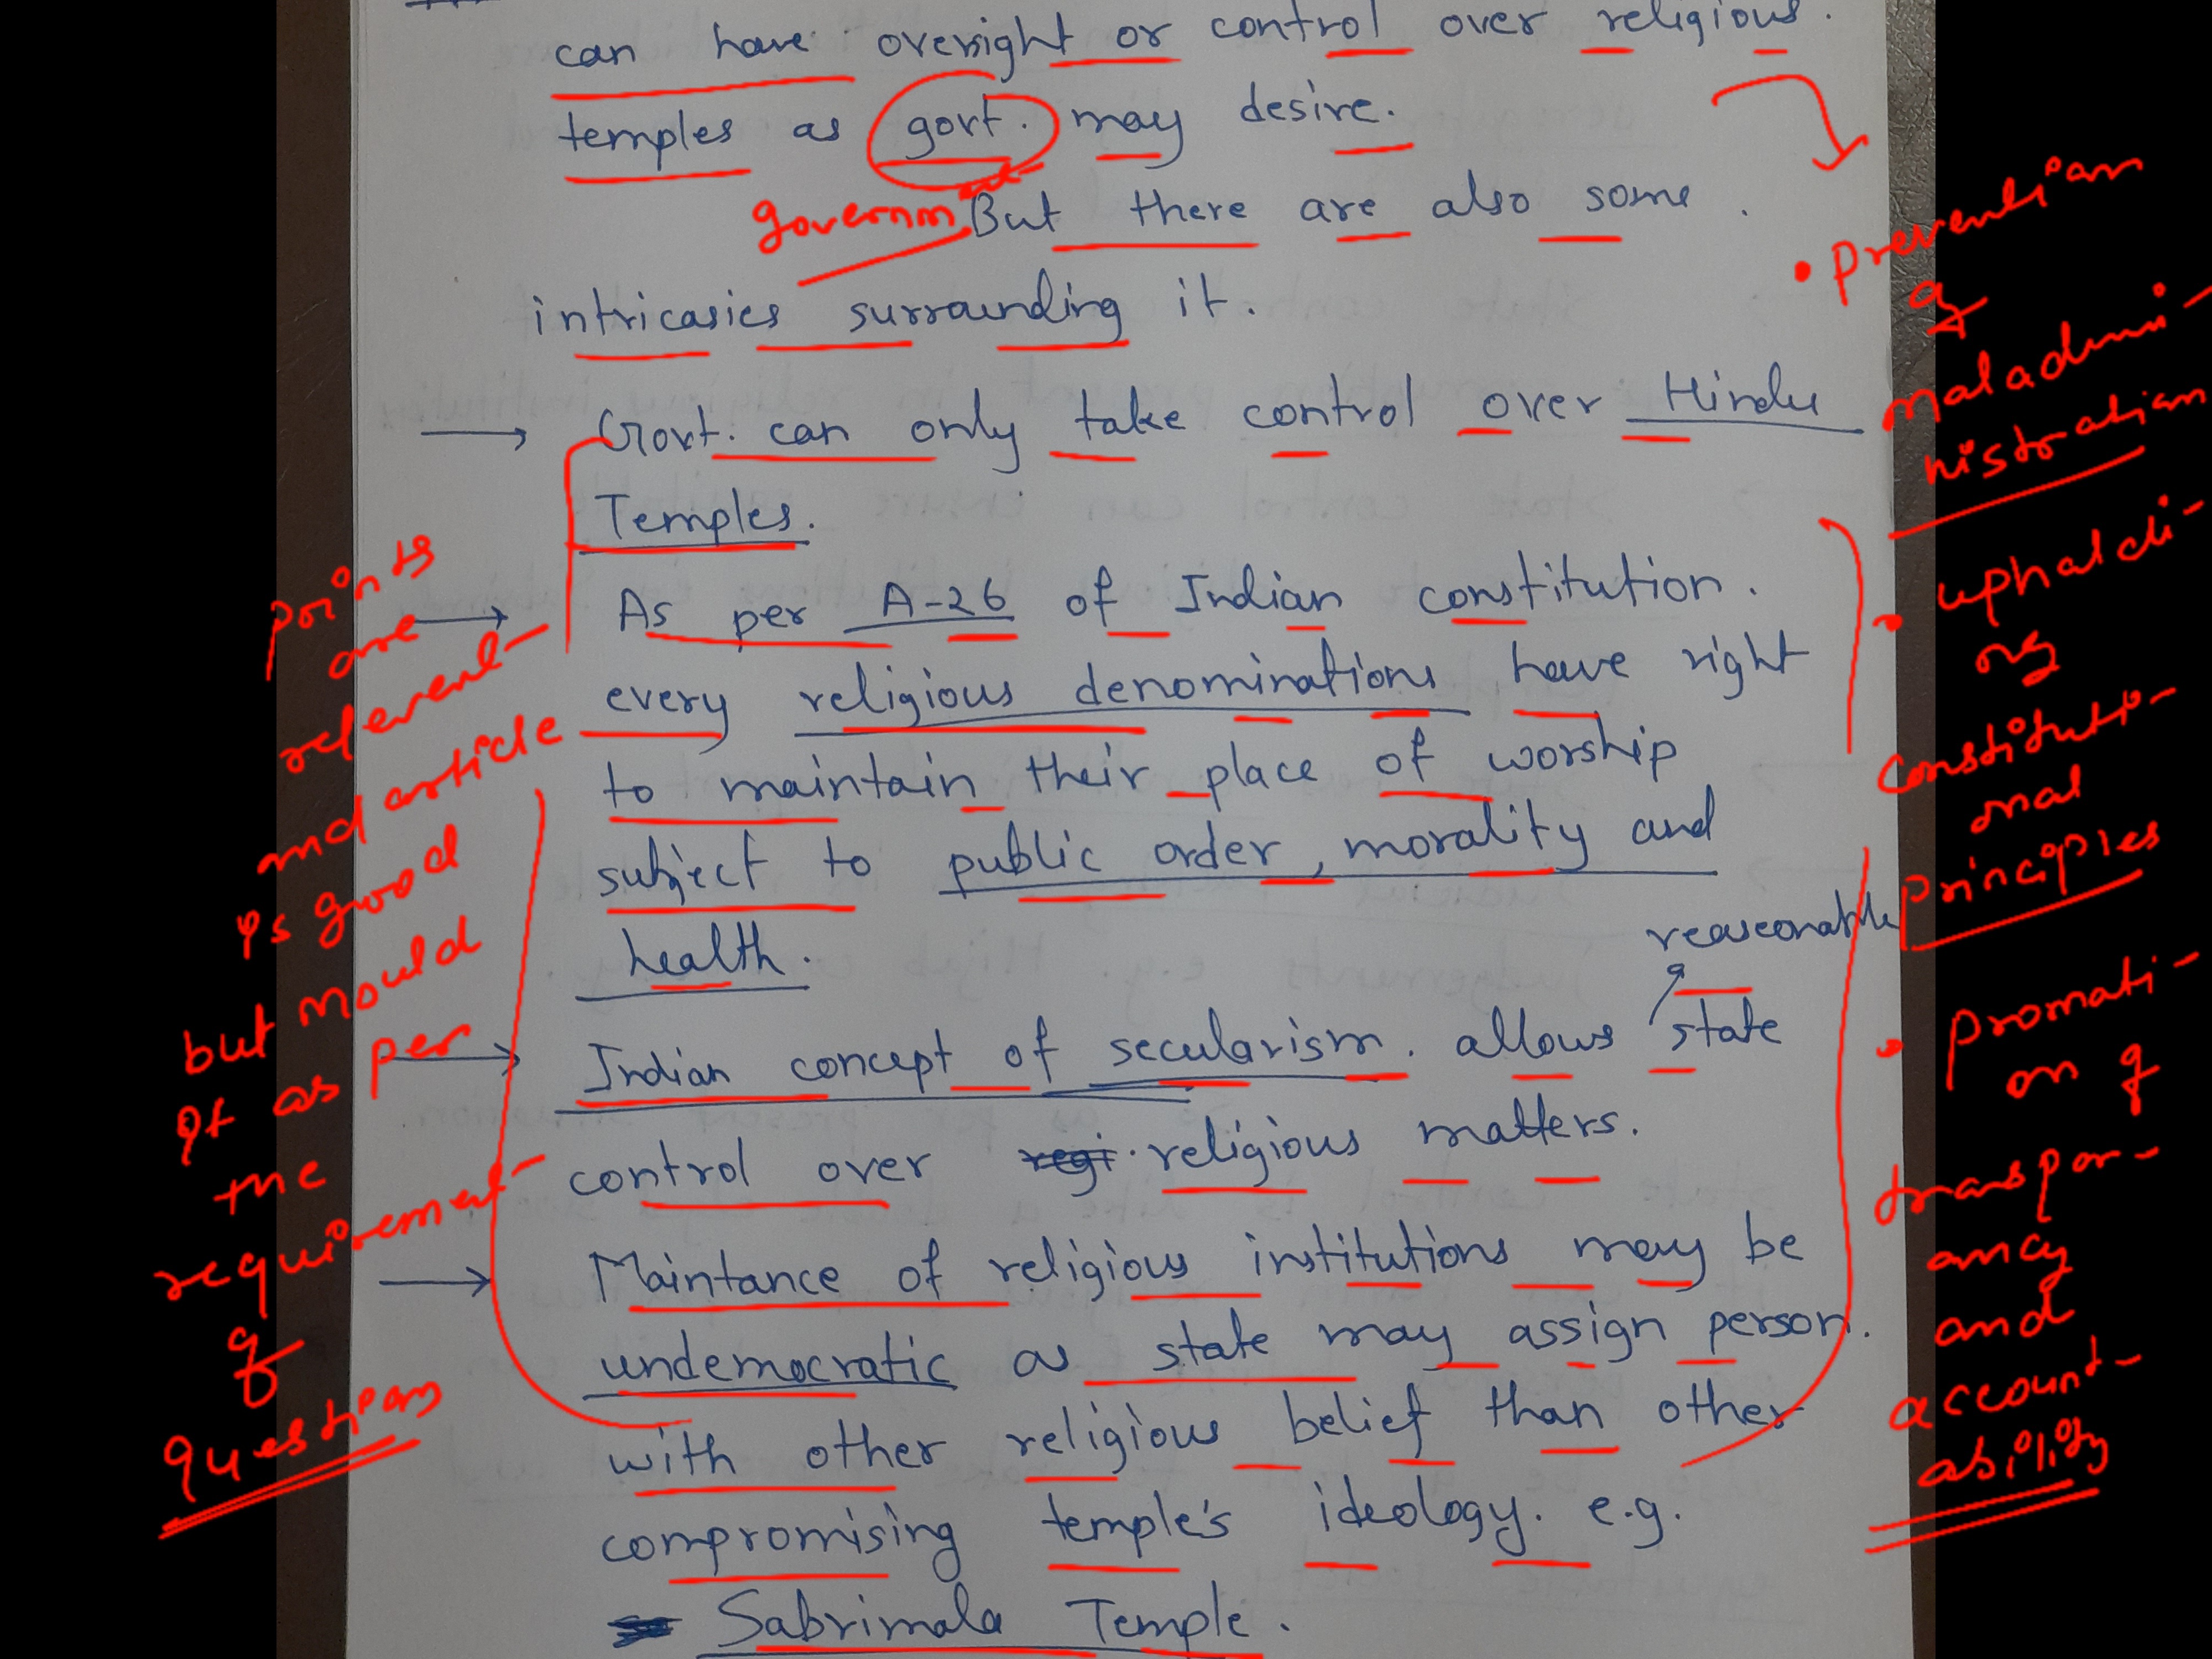 can have oversight or control over religious.
temples as govt. may desire.
government But there are also some
intricasies surrounding it.
→ Govt. can only take control over Hindu
Temples.
→ As per A-26 of Indian constitution.
every religious denominations have right
to maintain their place of worship
subject to public order, morality and
health.
reaseonable
→ Indian concept of secularism. allows state
control over religious matters.
→ Maintance of religious institutions may be
undemocratic as state may assign person.
with other religious belief than other
compromising temple's ideology. e.g.
Sabrimala Temple.
points
are
relevent
and article
is good
but mould
it as per
the
requirement
of
question
• prevention
of
maladmi-
nistration
• upholdi-
ng
constituti-
onal
principles
• promoti-
on of
transpar-
ancy
and
account-
ability